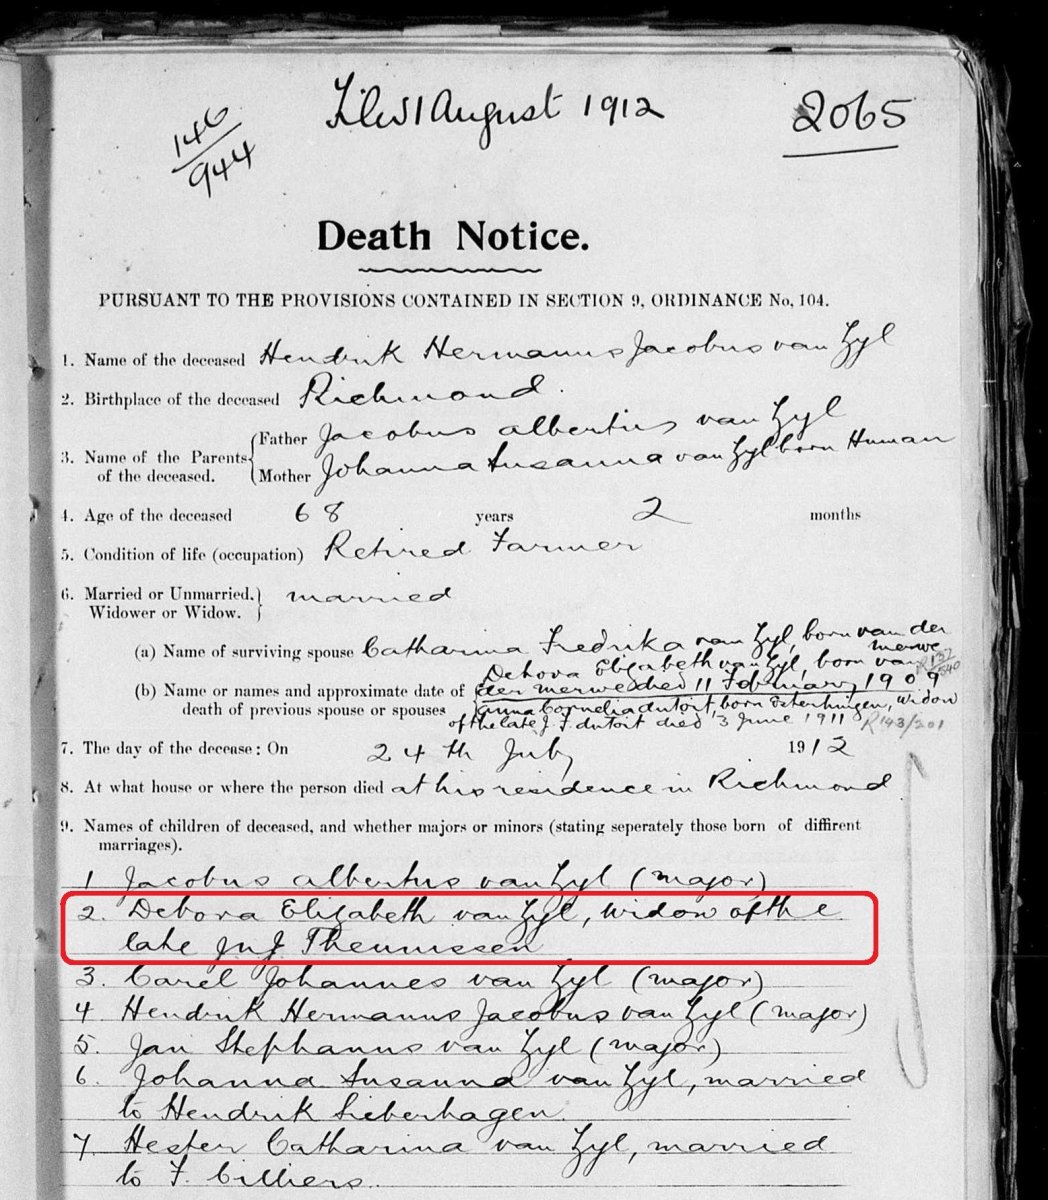 Filed 1 August 1912
2065
146
944
Death Notice.
PURSUANT TO THE PROVISIONS CONTAINED IN SECTION 9, ORDINANCE No, 104.
1. Name of the deceased Hendrik Hermanus Jacobus van Zyl
2. Birthplace of the deceased Richmond.
3. Name of the Parents of the deceased.
Father Jacobus albertus van Zyl
Mother Johanna Susanna van Zyl born Human
4. Age of the deceased 68 years 2 months
5. Condition of life (occupation) Retired Farmer
6. Married or Unmarried, Widower or Widow. married
(a) Name of surviving spouse Catharina Fredrika van Zyl, born van der merwe
(b) Name or names and approximate date of
death of previous spouse or spouses
Debora Elizabeth van Zyl, born van
der merwe died 11 February 1909
anna Cornelia du toit, born Esterhuizen, widow
of the late J. F. du toit died 3 June 1911 R143/201
7. The day of the decease: On 24th July 1912
8. At what house or where the person died at his residence in Richmond
9. Names of children of deceased, and whether majors or minors (stating seperately those born of diffirent
marriages).
1 Jacobus albertus van Zyl (major)
2. Debora Elizabeth van Zyl, widow of the
late Theunissen
3. Carel Johannes van Zyl (major)
4 Hendrik Hermanus Jacobus van Zyl (major)
5. Jan Stephanus van Zyl (major)
6. Johanna Susanna van Zyl, married
to Hendrik Lieberhagen
7 Hester Catharina van Zyl, married
to F. Cilliers.